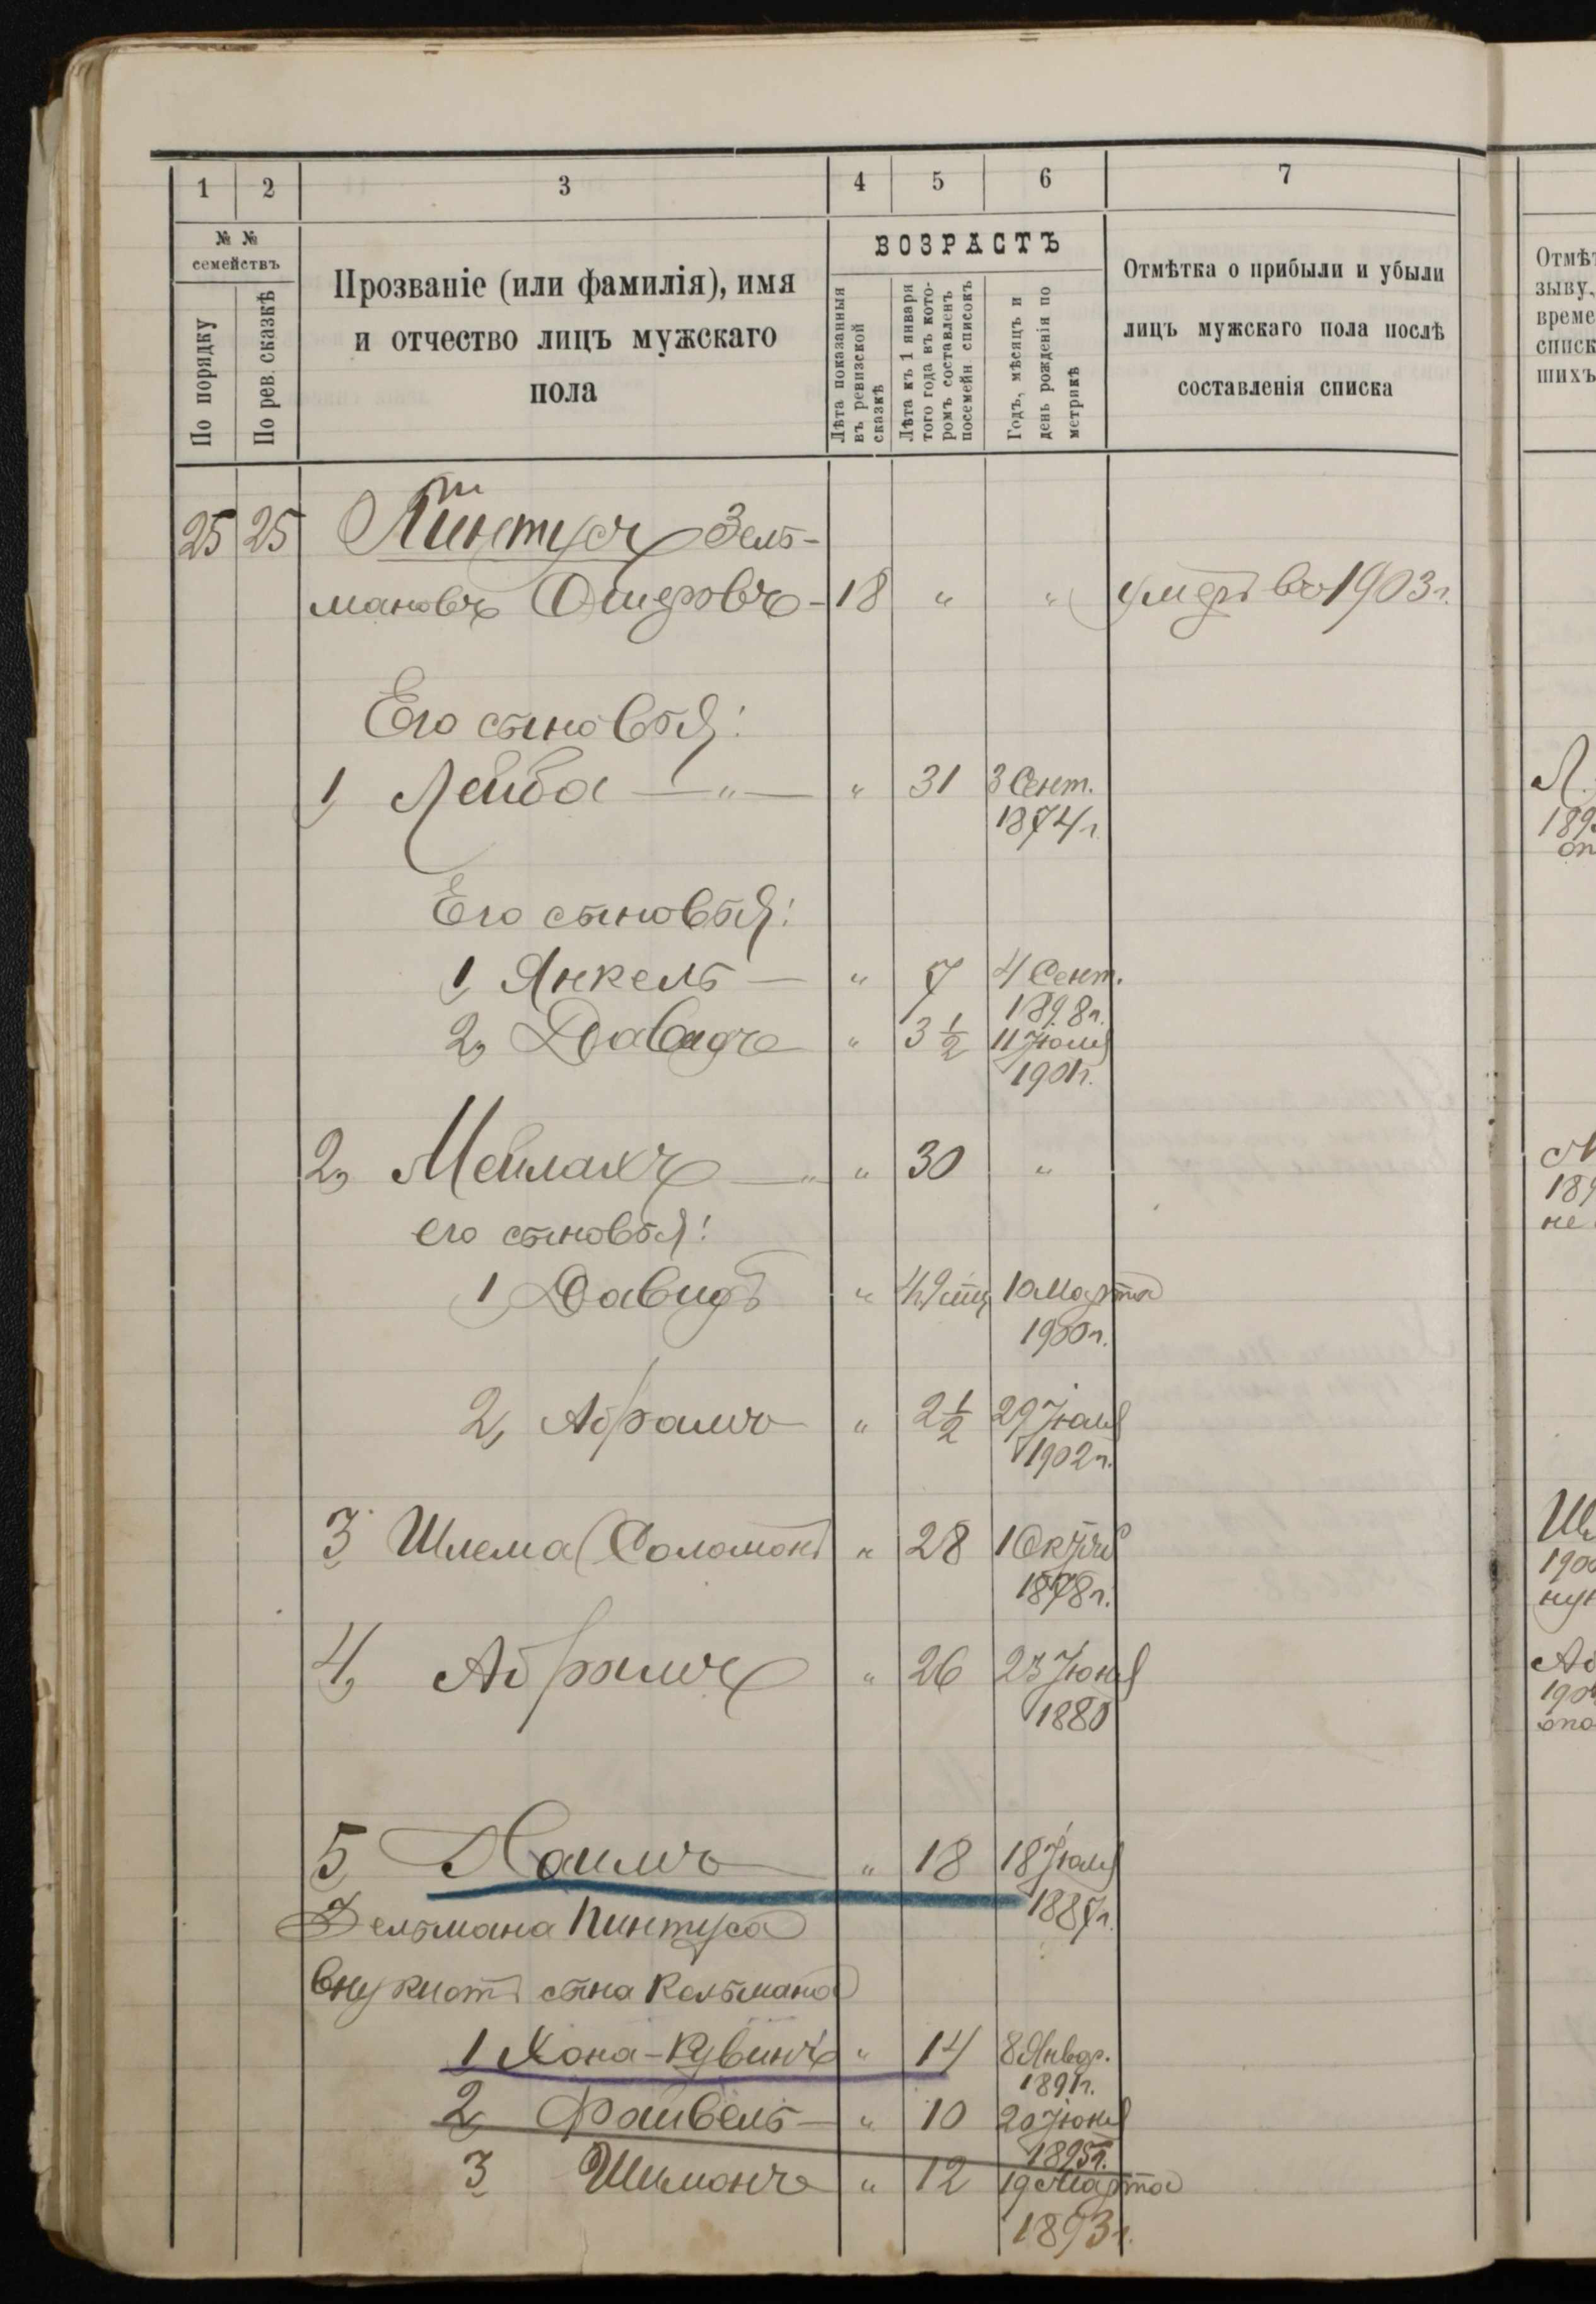 1 2 3 4 5 6 7
№ №
семействъ
По порядку
По рев. сказкѣ
Прозваніе (или фамилія), имя
и отчество лицъ мужскаго
пола
ВОЗРАСТЪ
Лѣта показанныя
въ ревизской
сказкѣ
Лѣта къ 1 января
того года въ кото-
ромъ составленъ
посемейн списокъ
Годъ, мѣсяцъ и
день рожденія по
метрикѣ
Отмѣтка о прибыли и убыли
лицъ мужскаго пола послѣ
составленія списка
25 25 Пинтусъ Зель-
мановъ Ошеровъ - 18 " " умеръ въ 1903 г.
Его сыновья:
1, Лейба — " — " 31 3 Сент.
1874 г.
Его сыновья:
1, Янкель — " 7 4 Сент.
1898 г.
2, Давидъ " 3 1/2 11 Іюля
1901 г.
2, Мейлахъ — " " 30 "
его сыновья:
1, Давидъ " 10 Марта
1900 г.
2, Абрамъ " 2 1/2 29 Іюля
1902 г.
3 Шлема (Соломонъ " 28 1878 г.
4, Абрамъ " 26 23 Іюня
1880
5, Хаимъ " 18 18 Іюля
1887 г.
Зельмана Пинтуса
внуки отъ сына Кельмана
1, Хона-Кувинъ " 14 8 Январ.
1891 г.
2, Файвель — " 10 20 Іюня
1895 г.
3 Шимонъ " 12 19 Марта
1893 г.
Отмѣт
зыву,
време
списк
шихъ